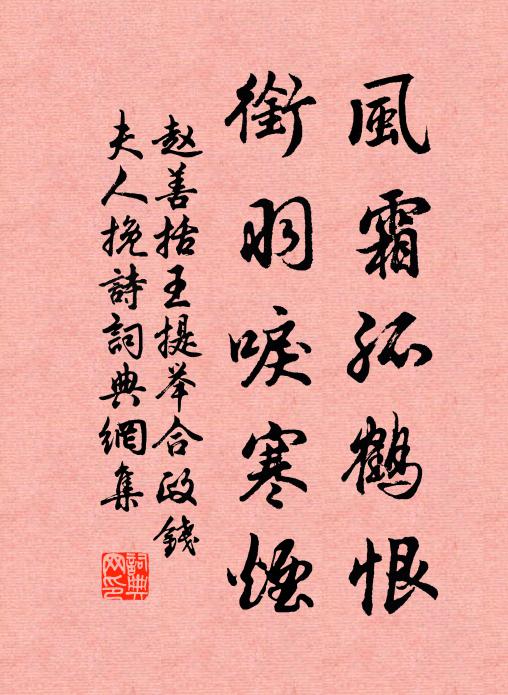 風霜孤鶴恨
銜羽唳寒煙
赵善括王提举合政錢
夫人挽詩詞典網集
詞典网印